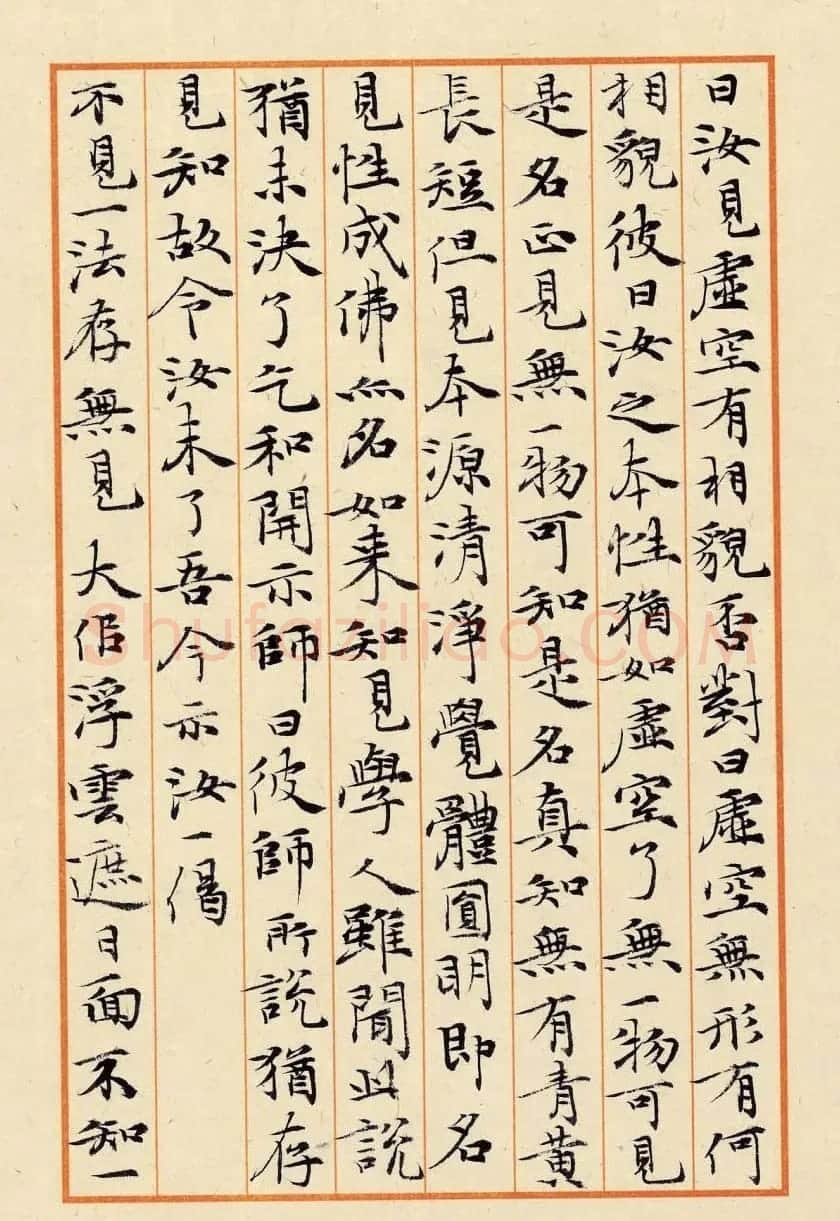 曰汝見虛空有相貌否對曰虛空無形有何
相貌彼曰汝之本性猶如虛空了無一物可見
是名正見無一物可知是名真知無有青黃
長短但見本源清淨覺體圓明即名
見性成佛亦名如来知見學人雖聞此說
猶未決了乞和開示師曰彼師所說猶存
見知故令汝未了吾今示汝一偈
不見一法存無見 大佀浮雲遮日面不知一
Shufaziliao.com